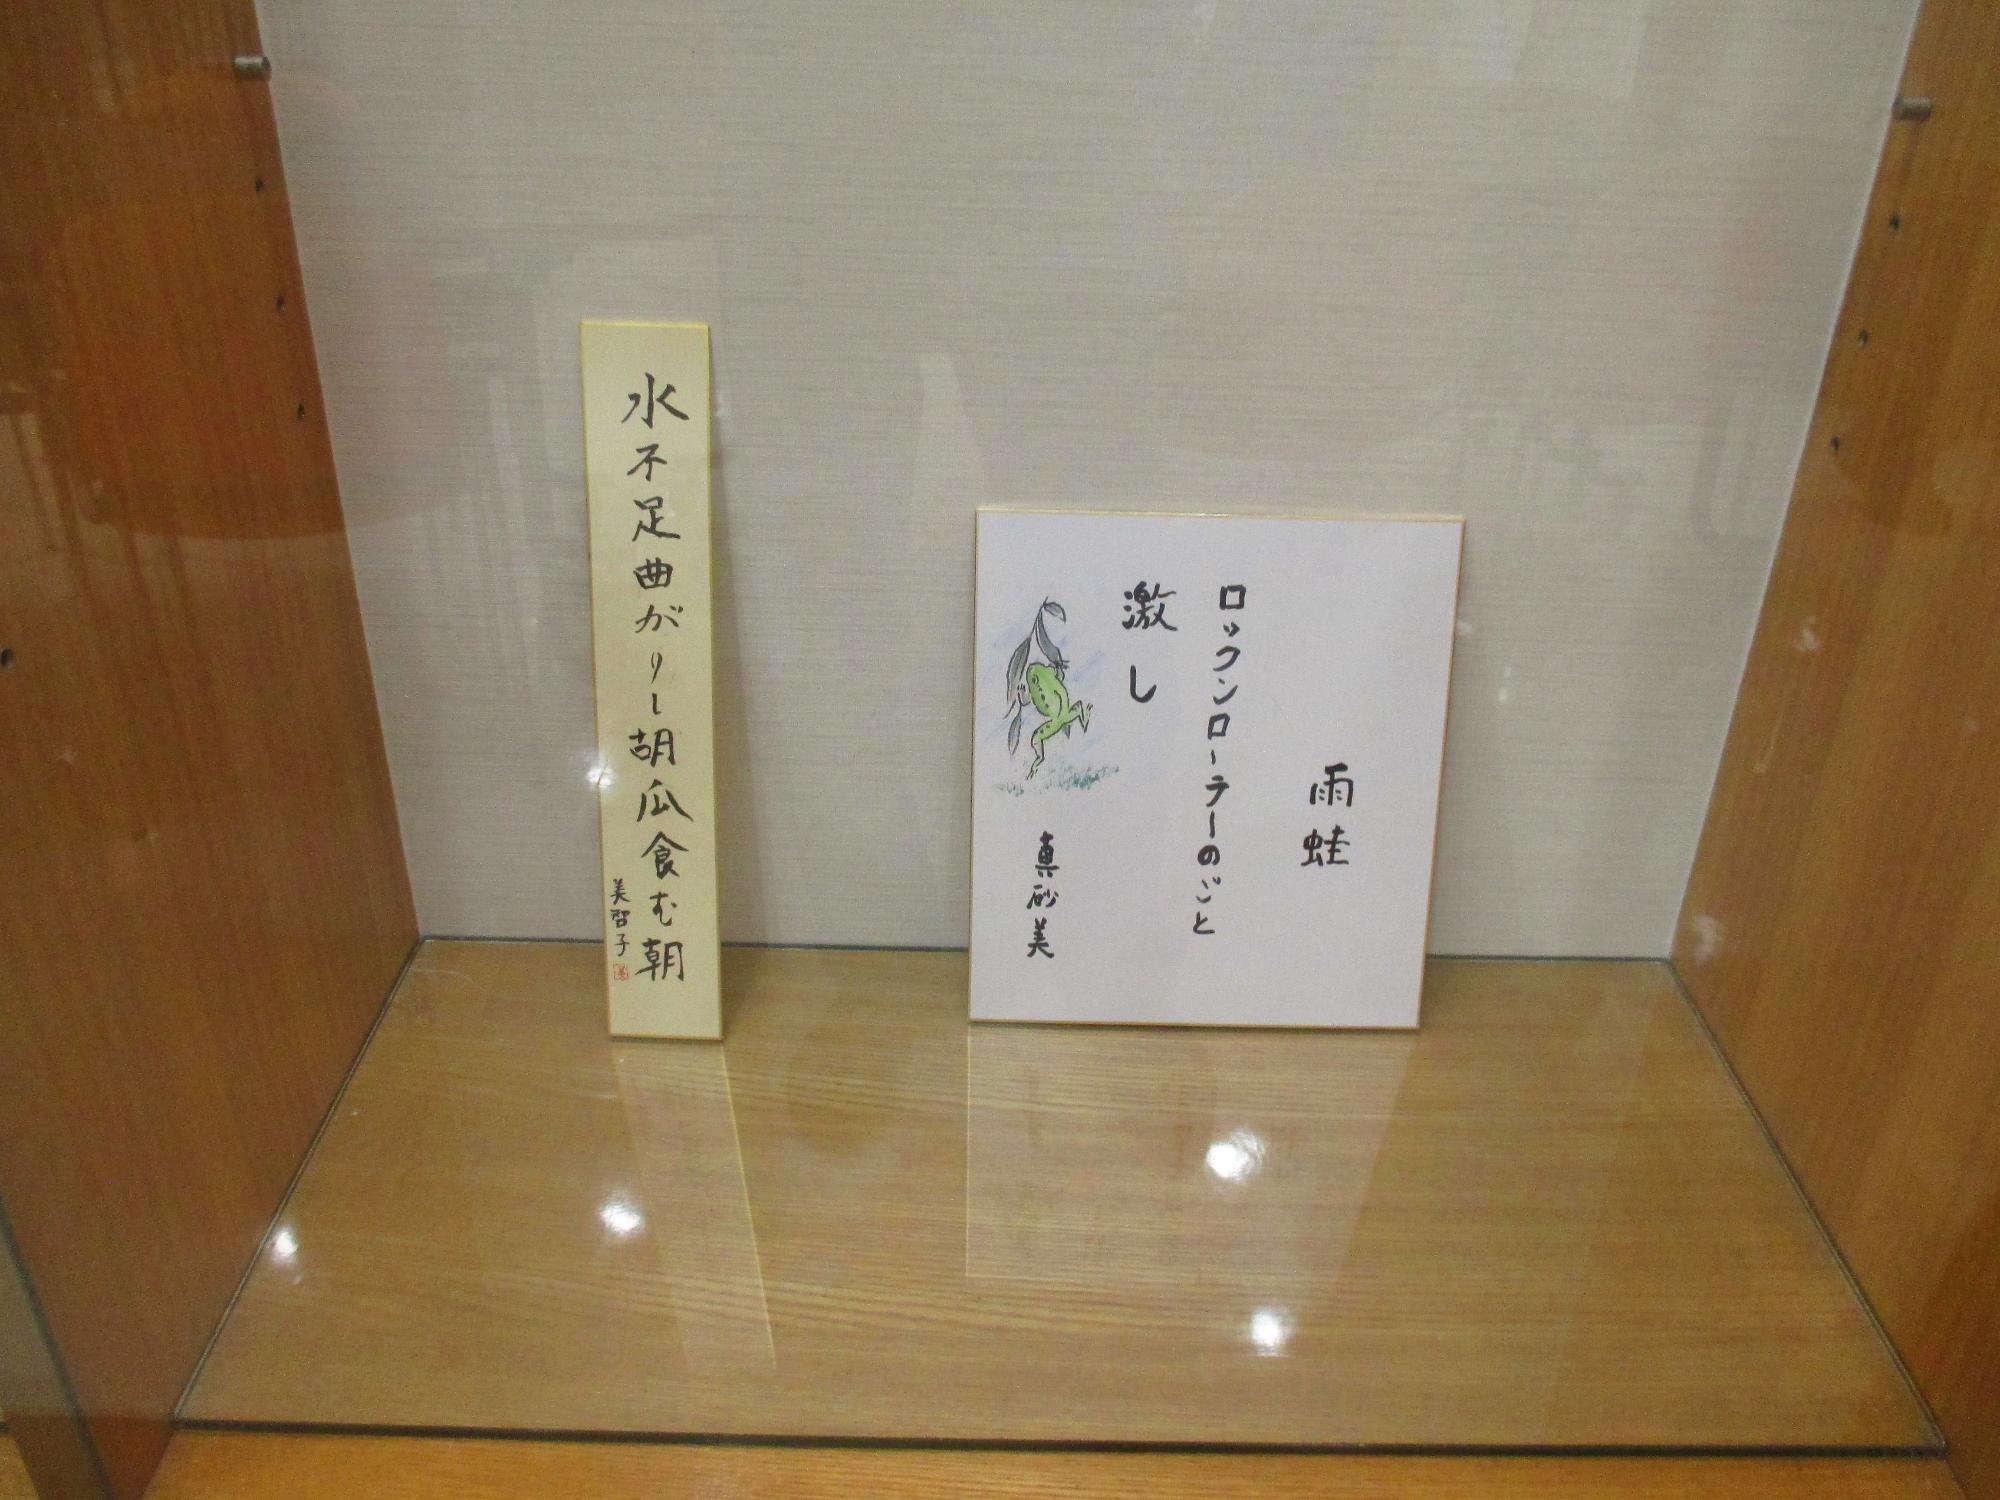 水不足曲がりし胡瓜食む朝
美智子
雨蛙
ロックンローラーのごと
激し
真砂美